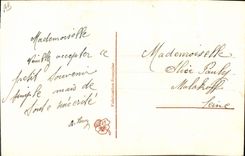 Mademoiselle
Veuillez accepter ce
petit souvenir
simple mais de
toute sincérité
Mademoiselle
Pauly
Malakoff
Seine